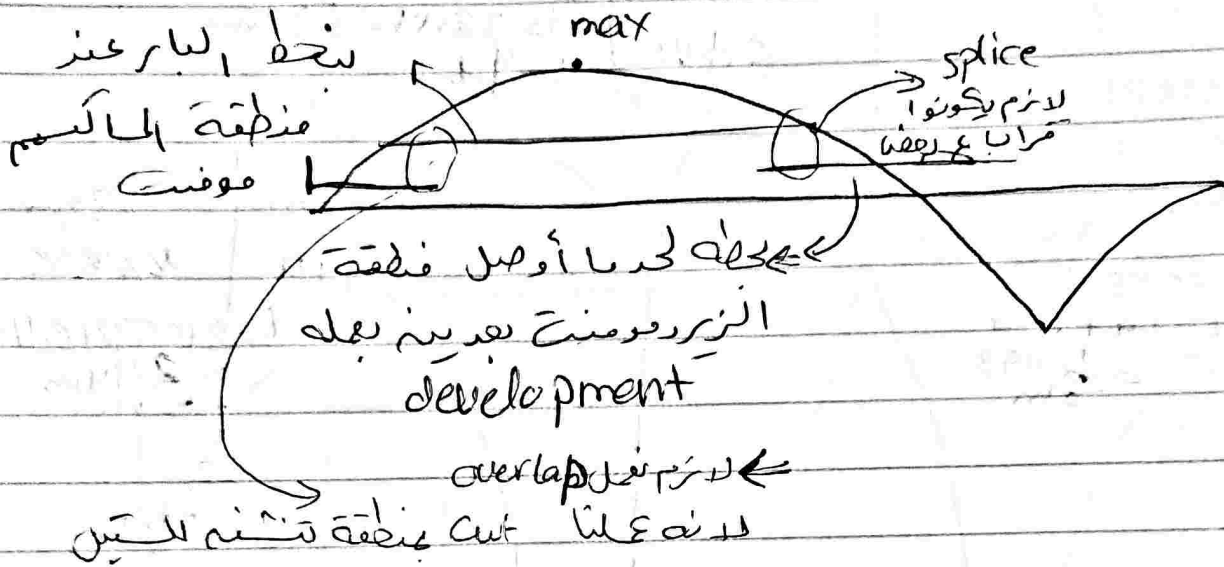 max
بنحط البار عند
منطقة الماكسيمم
مومنت
splice
لازم يكونوا
قراب ع بعض
بحطه لحد ما أوصل منطقة
الزيرومومنت بعدين بعمله
development
لازم نعمل overlap
لانه عملنا cut بمنطقة تنشن للستيل